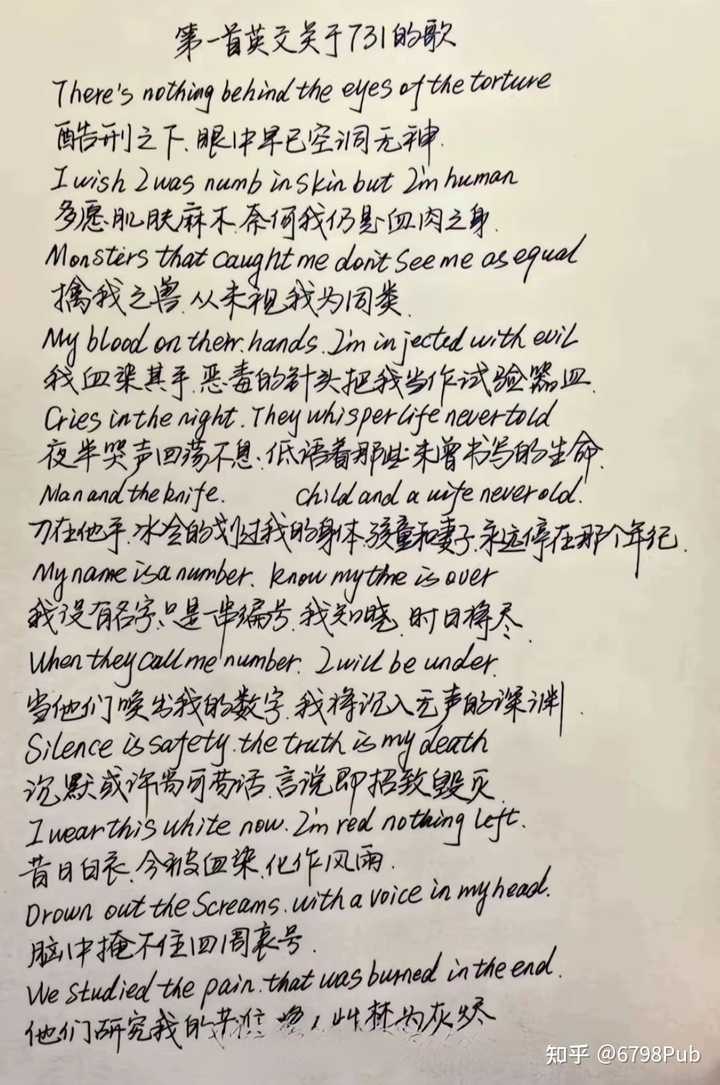 第一首英文关于731的歌
There's nothing behind the eyes of the torture
酷刑之下.眼中早已空洞无神.
I wish I was numb in skin but I'm human
多愿肌肤麻木.奈何我仍是血肉之身.
Monsters that caught me don't see me as equal
擒我之兽.从未视我为同类.
My blood on their hands. I'm injected with evil
我血染其手.恶毒的针头把我当作试验器皿.
Cries in the night. They whisper life never told
夜半哭声回荡不息.低语着那些未曾书写的生命.
Man and the knife. child and a wife never old.
刀在他手.冰冷的划过我的身体.孩童和妻子.永远停在那个年纪.
My name is a number. know my time is over
我没有名字.只是一串编号.我知晓.时日将尽.
When they call me number. I will be under.
当他们唤出我的数字.我将沉入无声的深渊.
Silence is safety. the truth is my death
沉默或许尚可苟活.言说即招致毁灭.
I wear this white now. I'm red nothing left.
昔日白衣.今被血染.化作风雨.
Drown out the Screams. with a voice in my head.
脑中掩不住四周哀号.
We studied the pain. that was burned in the end.
他们研究我的 为灰烬
知乎 @6798Pub